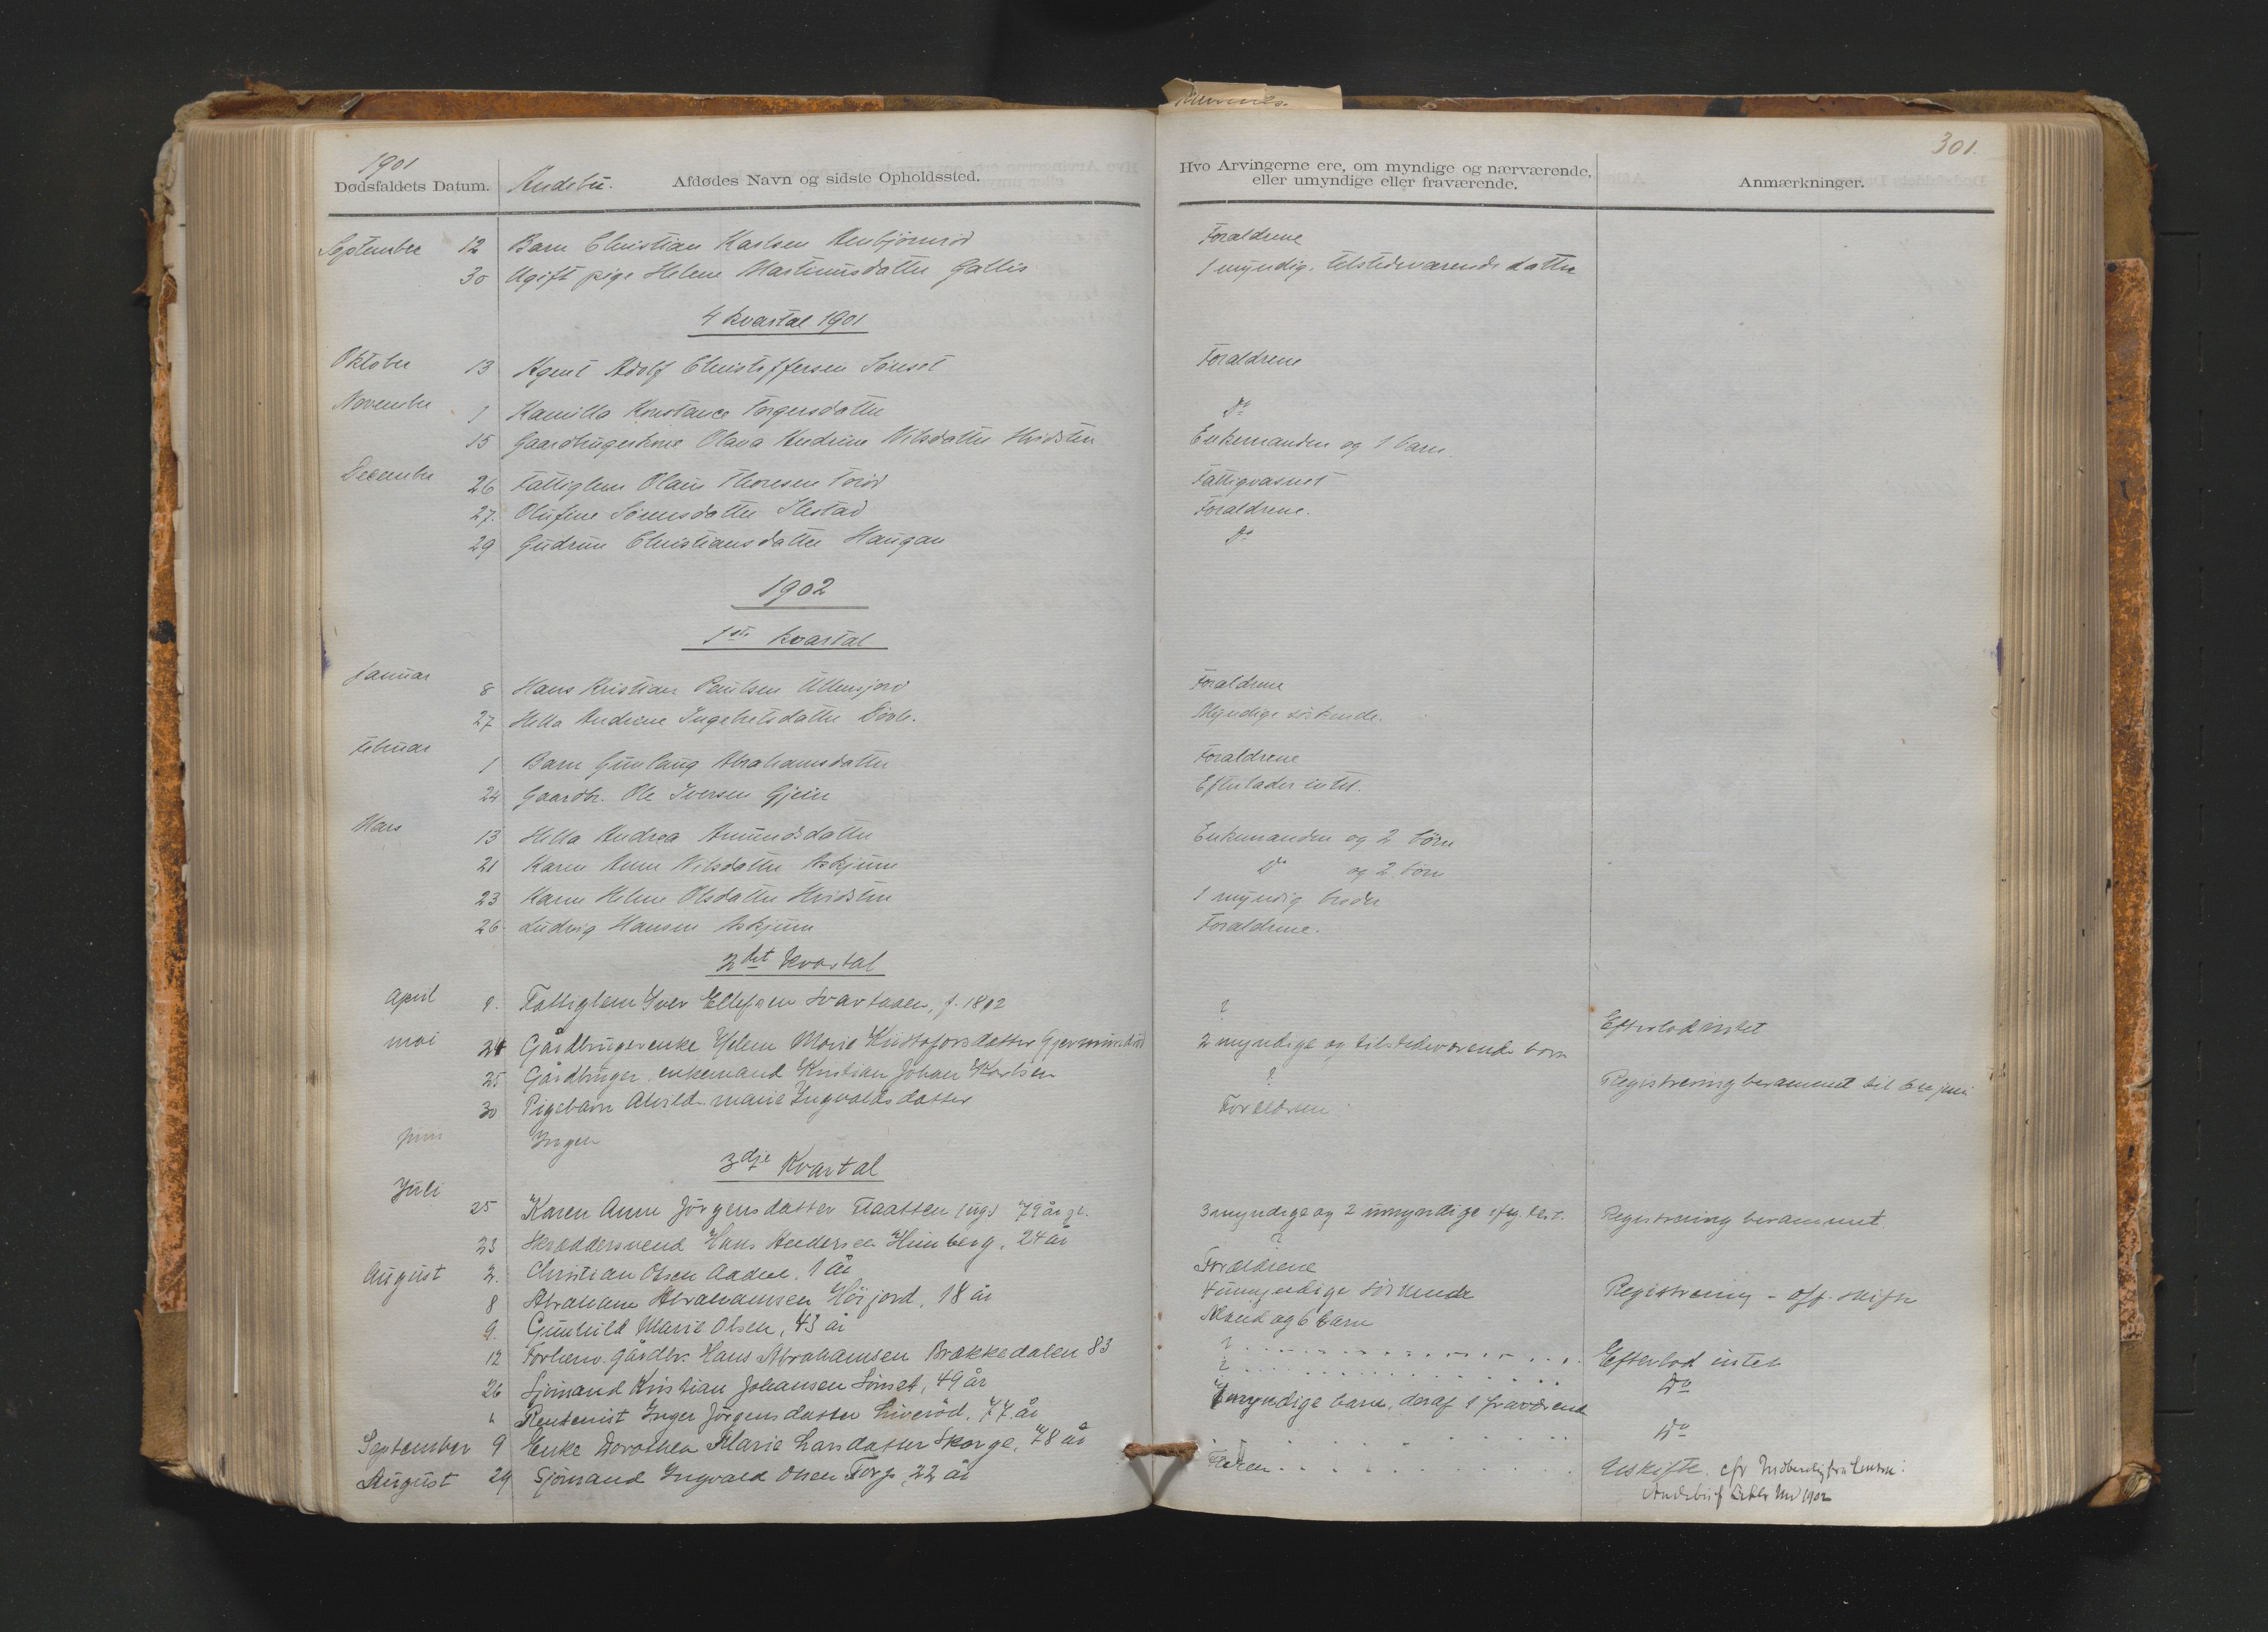 301.
1901
Dødsfaldets Datum. Andebu. Afdødes Navn og sidste Opholdssted. Hvo Arvingerne ere, om myndige og nærværende, eller umyndige eller fraværende. Anmærkninger.
September 12 Barn Christian Karlsen Forældrene
30 Ugift pige Helene Martinusdatter Gallis 1 myndig, tilstedeværende datter
4 kvartal 1901
Oktober 13 Agent Adolf Christoffersen Sønset Forældrene
November 1 Kamilla Konstance Torgersdatter Do
15 Gaardbrugerkone Olava Andrine Nilsdatter Hvidsten Enkemanden og 1 barn
December 26 Fattiglem Olaus Thoresen Torød Fattigvæsnet
27. Olufine Sørensdatter Ilestad Forældrene.
29 Gudrun Christiansdatter Haugan Do
1902
1ste kvartal
Januar 8 Hans Kristian Paulsen Forældrene
27 Hella Andrine Ingebretsdatter Myndige søskende.
Februar 1 Barn Gunlaug Abrahamsdatter Forældrene
24 Gaardbr. Ole Iversen Gjein Efterlader intet.
Mars 13 Hella Andrea Amundsdatter Enkemanden og 2 børn
21 Karen Anne Nilsdatter Askjum Do og 2 børn
23 Karen Helene Olsdatter Hvidsten 1 myndig broder
26. Ludvig Hansen Askjum Forældrene.
2det Kvartal
April 9. Fattiglem Iver Ellefsen Svartaaen, f. 1812 ? Efterlod intet
mai 24 Gårdbrugerenke Helene Marie Kristofersdatter 2 myndige og tilstedeværende børn
25 Gårdbruger enkemand Kristian Johan Karlsen ? Registrering berammet til
30 Pigebarn Alvilde marie Ingvaldsdatter Forældrene
juni Ingen
3dje Kvartal
Juli 25 Karen Anne Jørgensdatter 79 år gl. 3 myndige og 2 umyndige Registrering berammet.
23 Skræddersvend Hans Andersen Heimberg, 24 år ?
August 2. Christian Olsen 1 år Forældrene
8 Abraham Abrahamsen Høijord, 18 år 4 umyndige søskende Registrering - off. skifte
9. Gunhild Marie Olsen, 43 år Mand og 6 barn
12 Forhenv. gårdbr. Hans Abrahamsen Brækkedalen 83 ? Efterlod intet
26 Sjømand Kristian Johansen Sønset, 49 år ? Do
" Rentenist Inger Jørgensdatter 77 år myndige barn, deraf 1 fraværend
September 9 Enke Dorothea Marie Larsdatter Skorge, 78 år Do
August 29 Sjømand Ingvald Olsen Torp, 22 år Uskifte. cfr
1902